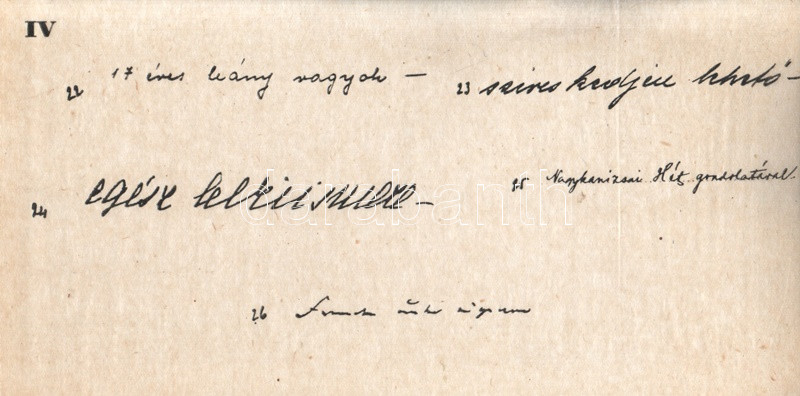 IV
22 17 éves leány vagyok —
23 szíveskedjen lehető —
24 egész lelkiismere —
25 Nagykanizsai Hét gondolatával.
26
darabanth